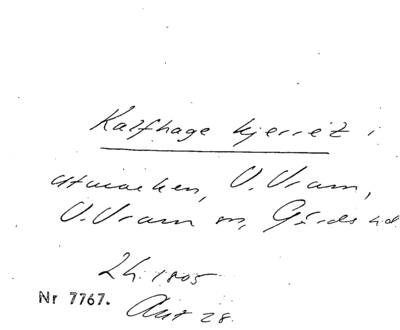 Kalfhage kjerret i
utmarken, V. Vram,
V. Vram sn, Gärds hd.
1805
Nr 7767. Akt 28.